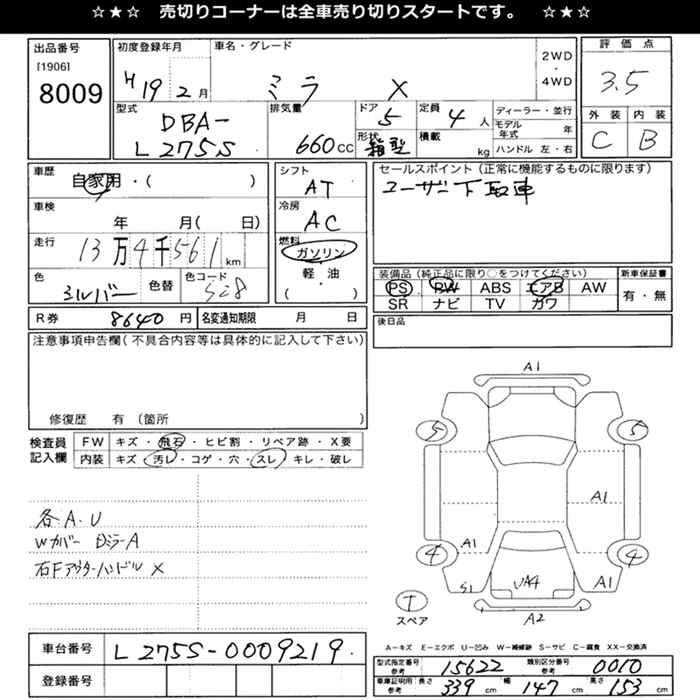 ☆★☆ 売切りコーナーは全車売り切りスタートです。 ☆★☆
出品番号 [1906] 8009
初度登録年月 H19年 2月
車名・グレード ミラ X
2WD・4WD
評価点 3.5
外装 C 内装 B
型式 DBA-L275S
排気量 660cc
ドア 5 形状 箱型
定員 4人 積載 kg
ディーラー・並行
モデル年式 年
ハンドル 左・右
車歴 自家用・( )
車検 年 月( 日)
走行 13万4千561km
色 シルバー 色替 色コード S28
シフト AT
冷房 AC
燃料 ガソリン 軽・油 ( )
セールスポイント(正常に機能するものに限ります)
ユーザー下取車
装備品(純正品に限り○をつけてください)
PS PW ABS エアB AW
SR ナビ TV カワ
新車保証書 有・無
R券 8640円 名変通知期限 月 日
後日品
注意事項申告欄(不具合内容等は具体的に記入して下さい)
修復歴 有(箇所
検査員記入欄
FW キズ・飛石・ヒビ割・リペア跡・X要
内装 キズ・汚レ・コゲ・穴・スレ・キレ・破レ
各A.U
Wカバー DミラーA
右Fアウターハンドル X
A1
5 5
A1
A1
4 4
S1 A1
A2
T
スペア
A-キズ E-エクボ U-凹み W-補修跡 S-サビ C-腐食 XX-交換済
車台番号 L275S-0009219.
登録番号
型式指定番号 参考 15622 類別区分番号 参考 0010
車庫証明用 参考 長さ 339cm 幅 147cm 高さ 153cm